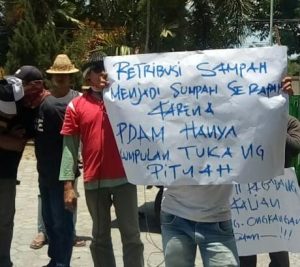 RETRIBUSI SAMPAH
MENJADI SUMPAH SERAPAH
KARENA
PDAM HANYA
KUMPULAN TUKANG
PITNAH
KALIAN